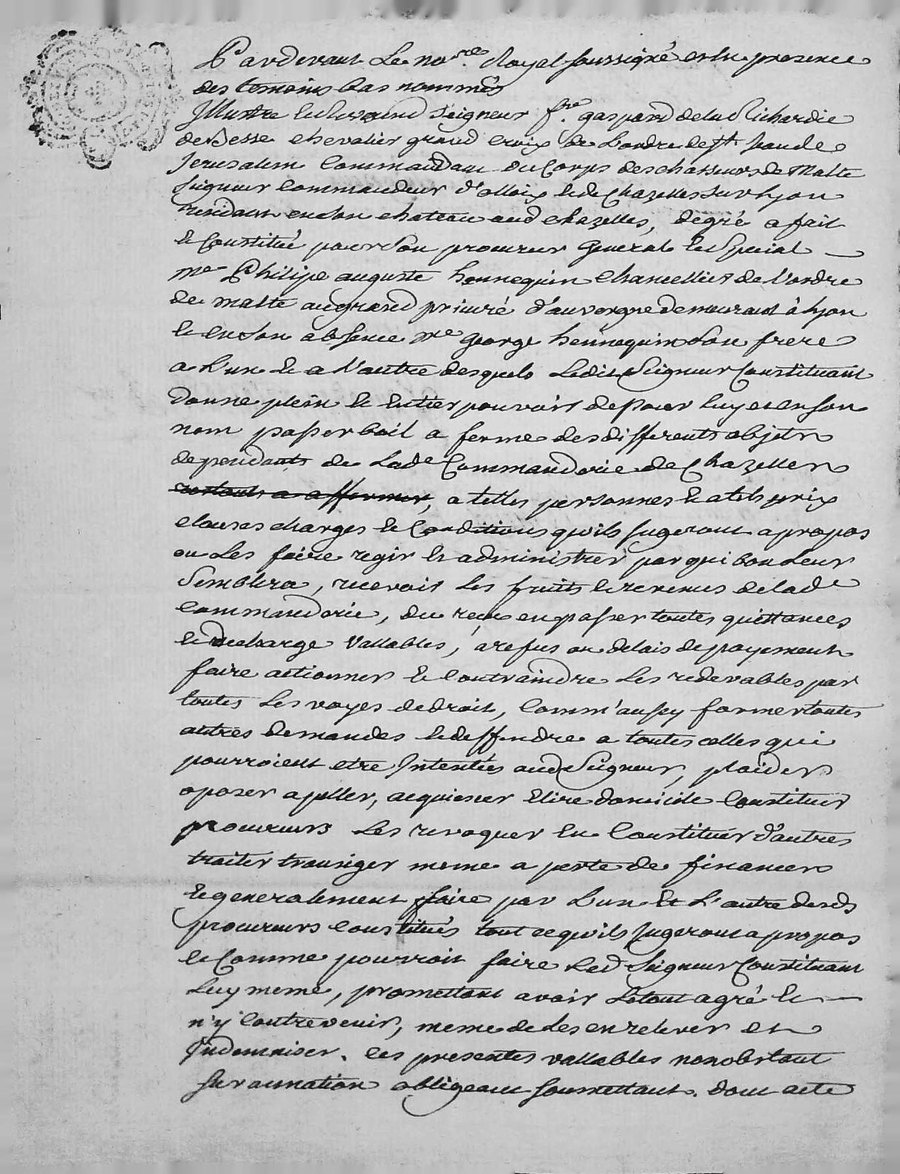 Pardevant Le no.re Royal soussigné et en presence
des temoins bas nommés
Illustre et Reverend Seigneur f.re gaspard de la Richardie
de Besse chevalier grand croix de L'ordre de st jean de
Jerusalem Commandant du Corps des chasseurs de Malte
Seigneur Commandeur d'olloix et de Chazelles sur Lyon
residant en son chateau aud Chazelles, degré a fait
et Constitué pour son procureur general et special
me Philipe auguste hennequin Chancellier de L'ordre
de malte au grand prieuré d'auvergne demeurant à Lyon
et en son absence me george hennequin son frere
a L'un et a L'autre desquels Ledit Seigneur Constituant
donne plein et entier pouvoir de pour luy et en son
nom passer bail a ferme des differents objets
dependants de Lade Commanderie de Chazelles
restants a affermer, a telles personnes et a tels prix
clauses charges et Conditions qu'ils Jugeront a propos
ou Les faire regir et administrer par qui bon Leur
Semblera, recevoir Les fruits et revenus de lade
Commanderie, du recu en passer toutes quittances
et decharge Vallables, a refus ou delais de payement
faire actionner et Contraindre Les redevables par
toutes Les voyes de droit, Comm'aussy former toutes
autres demandes et deffendre a toutes celles qui
pourroient etre Intentées aud Seigneur, plaider
oposer apeller, acquiescer Elire domicile Constituer
procureurs Les revoquer En Constituer d'autres
traiter transiger meme a perte de finances
et generalement faire par L'un et L'autre desds
procureurs Constitués tout ce qu'ils Jugeront a propos
et Comme pourroit faire Led Seigneur Constituant
Luy meme, promettant avoir Letout agré et
n'y Contrevenir, meme de Les en relever et
Indemniser. Ces presentes vallables nonobstant
Surannation obligeant soumettant. dont acte